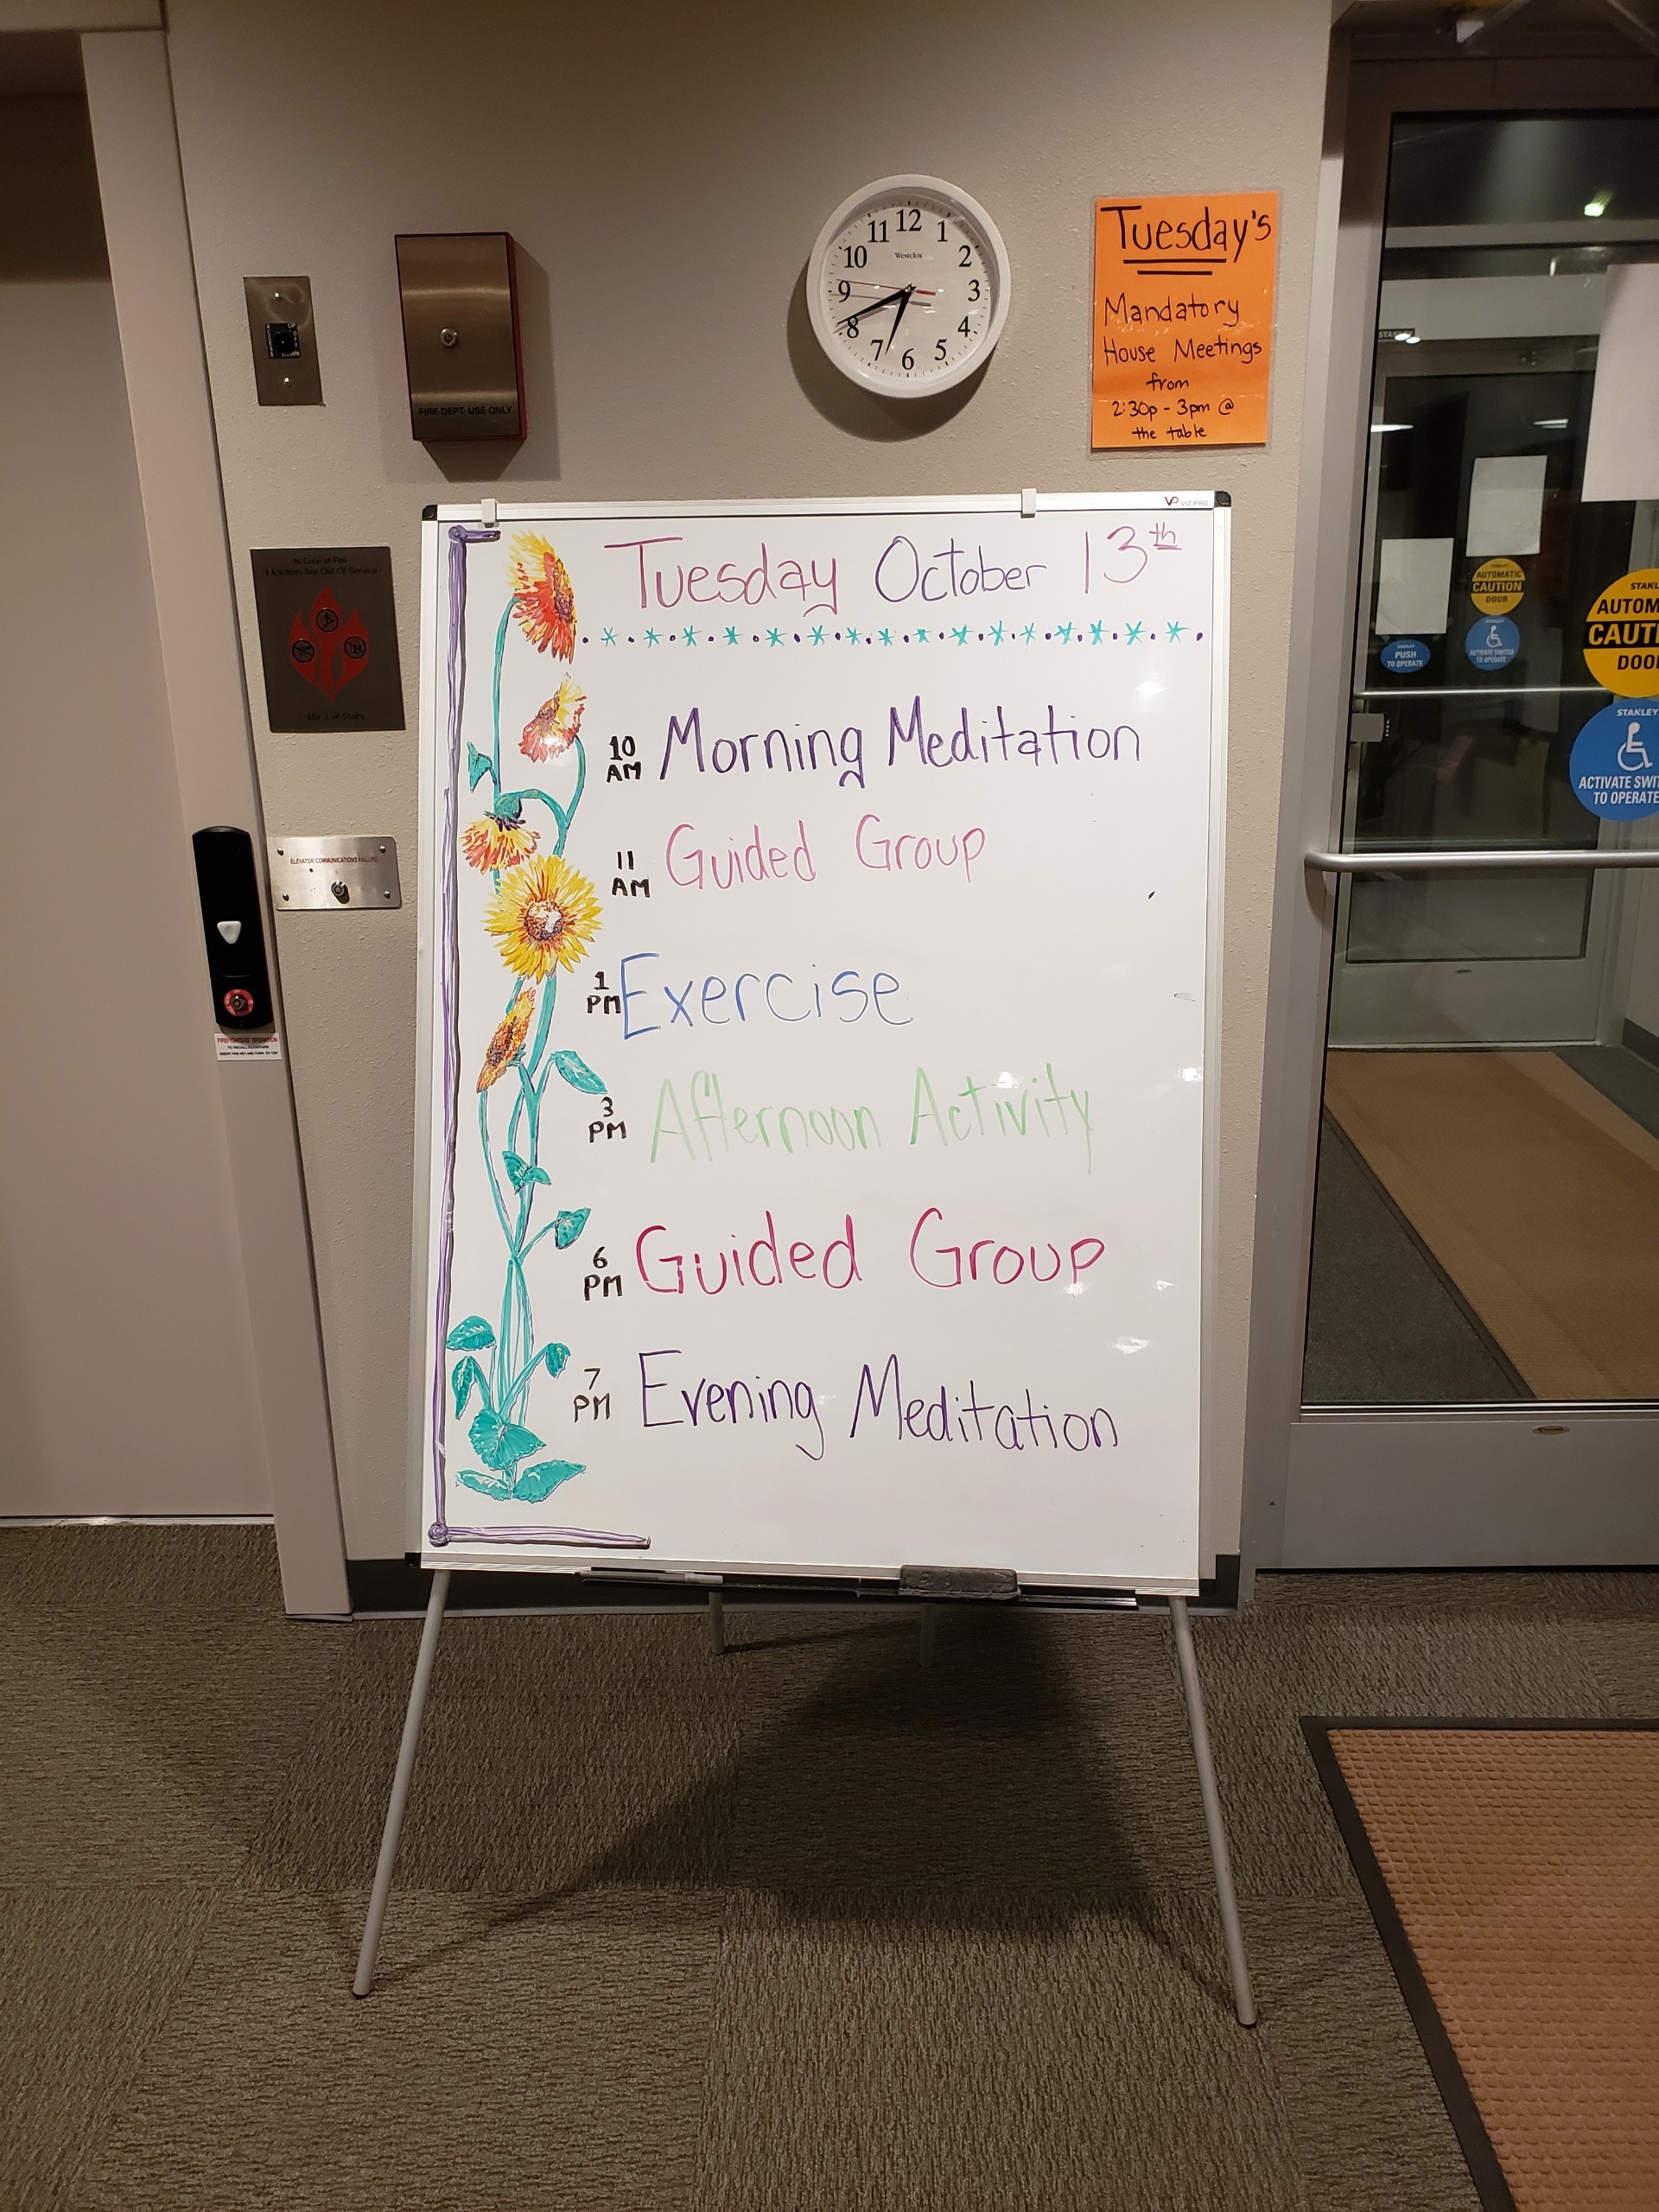 12
11
1
10
2
Westclox
9
3
8
4
7
5
6
Tuesday's
Mandatory
House Meetings
from
2:30p - 3pm @
the table
FIRE DEPT. USE ONLY
VIZ-PRO
Tuesday October 13th
10
AM
Morning Meditation
11
AM
Guided Group
1
PM
Exercise
3
PM
Afternoon Activity
6
PM
Guided Group
7
PM
Evening Meditation
In Case of Fire
Elevators Are Out Of Service
Use Exit Stairs
ELEVATOR COMMUNICATIONS FAILURE
FIREFIGHTERS' OPERATION
TO RECALL ELEVATORS
INSERT FIRE KEY AND TURN TO "ON"
AUTOMATIC
CAUTION
DOOR
PUSH
TO OPERATE
ACTIVATE SWITCH
TO OPERATE
STANLEY
AUTOM
CAUTI
DOO
STANLEY
ACTIVATE SWIT
TO OPERATE